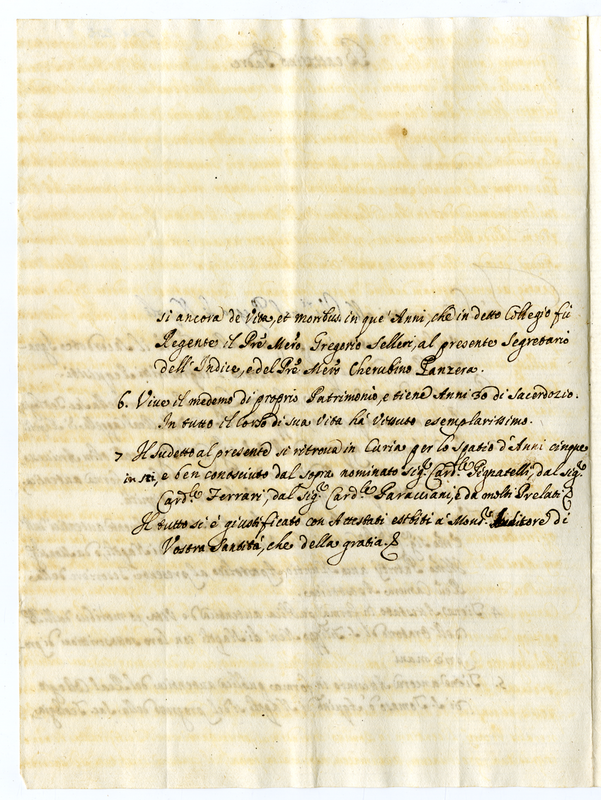 si ancora de Vita, et moribus in que' Anni, che in detto Collegio fù
Regente il Prê Mêro Gregorio Selleri, al presente Segretario
dell'Indice, e del Prê Mêro Cherubino Panzera.
6. Vive il medemo di proprio Patrimonio, e tiene Anni 20 di Sacerdozio.
In tutto il corso di sua Vita hà Vissuto esemplarissimo.
7 Il sudetto al presente si ritrova in Curia per lo spatio d'Anni cinque
in sei, e ben conosciuto dal sopra nominato Sigr. Cardle Pignatelli, dal Sigr.
Cardle Ferrari, dal Sigr. Cardle Paracciani, e da molti Prelati
Il tutto si è giustificato con Attestati esibiti à Monsr. Auditore di
Vostra Santità, che della gratia.